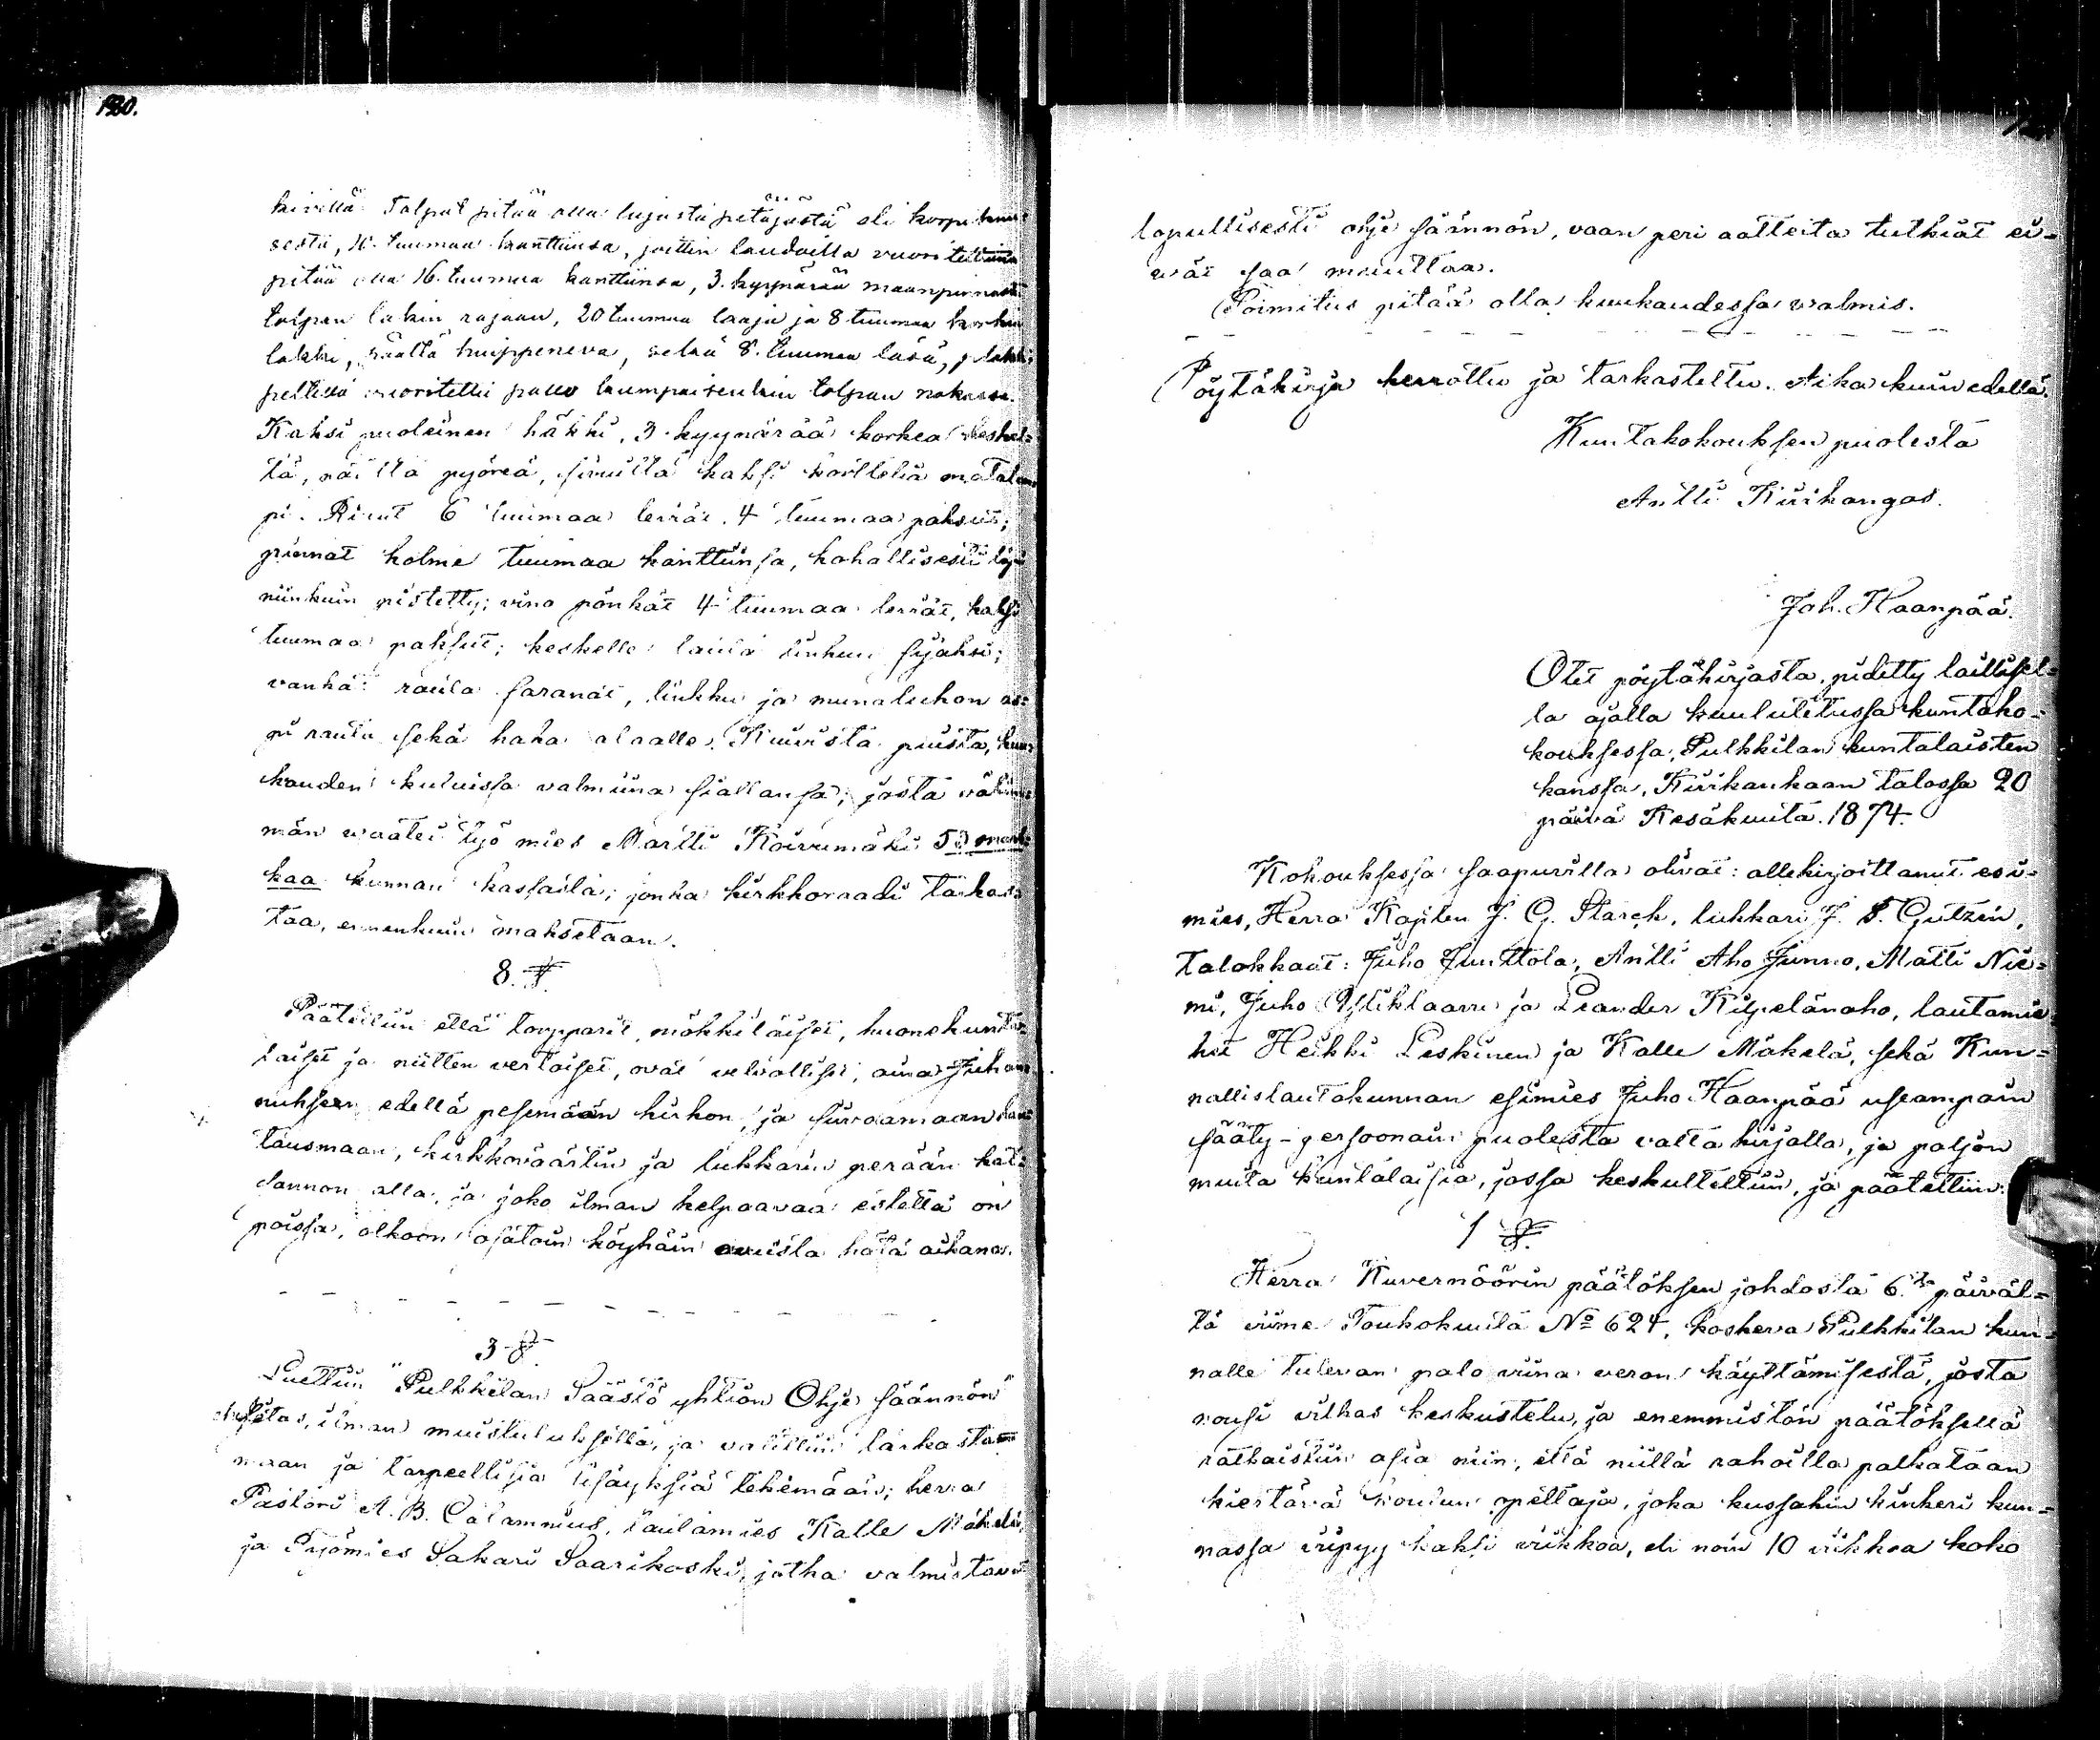 180.
kivellä. Tolpat pitää olla lujasta petäjästä eli korpi kuu-
sesta, 10. tuumaa kanttiinsa, joittin laudoilla vuoritettuna
pitää olla 16. tuumaa kanttiinsa, 3. kyynärää maanpinnasta
tolpan lakin rajaan, 20 tuumaa laaja ja 8 tuumaa korkia
lakki, päältä huippeneva, sekä 8. tuumaa
peltillä vuoritettu pallo kumpaisenkin tolpan nokassa.
Kaksi puoleinen häkki, 3 kyynärää korkea keskel-
tä, päiltä pyöreä, sivuilta kaksi korttelia matalam-
pi. Riivut 6 tuumaa leviät 4 tuumaa paksut;
piennat kolme tuumaa kanttiinsa, kohallisesti läpi
niinkuin pistetty; vino pönkät 4 tuumaa leviät, kaksi
tuumaa paksut; keskelle lauta sinkun syjäksi;
vankat rauta saranat, linkku ja munalukon as-
pi rauta sekä haka alaalle. Kuivista puista, kuu-
kauden kuluissa valmiina siallansa; josta vähim-
män vaatei työ mies Martti Koivumäki 53 mark-
kaa kunnan kassasta; jonka kirkkoraadi tarkas-
taa, ennenkuin maksetaan.
8. §.
Päätettiin että torpparit, mökkiläiset, huonekunta-
laiset ja niitten vertaiset, ovat velvolliset, aina Juhan-
nuksen edellä pesemään kirkon, ja siivoamaan hau-
tausmaan, kirkkoväärtin ja lukkarin perään kat-
dannon alla, ja joko ilman kelpaavaa estettä on
poissa, olkoon osatoin köyhäin avuista hätä aikana.
3 §.
Luettiin "Pulkkilan Säästö yhtiön Ohje säännön"
ehdotus, ilman muistutuksetta, ja valittiin tarkasta-
maan ja tarpeellisia lisäyksiä tekemään; herra
Pastori A. B. Calamnius, lautamies Kalle Mäkelä,
ja Työmies Sakari Saarikoski, jotka valmistava
lopullisesti ohje säännön, vaan peri aatteita tutkiat ei-
wät saa muuttaa.
Toimitus pitää olla kuukaudessa walmis.
Pöytäkirja kerrottu ja tarkastettu. Aika kuin edellä.
Kuntakokouksen puolesta
Antti Kiirikangas.
Joh. Haanpää.
Ote pöytäkirjasta, pidetty laillisel-
la ajalla kuulutetussa kuntako-
kouksessa, Pulkkilan kuntalaisten
kanssa, Kiirikankaan talossa 20
päivä Kesäkuuta. 1874.
Kokouksessa saapuvilla olivat: allekirjoittanut esi-
mies, Herra Kapten J. G. Starck, lukkari J. S. Gutzén,
Talokkaat: Juho Junttola, Antti Aho Junno, Matti Nie-
mi, Juho Yliklaavu ja Leander Kilpelänaho, lautamie-
het Heikki Leskinen ja Kalle Mäkelä, sekä Kun-
nallislautakunnan esimies Juho Haanpää useampain
sääty-persoonain puolesta valta kirjalla, ja paljon
muita kuntalaisia, jossa keskulteltiin, ja päätettiin:
1 §.
Herra Kuvernöörin päätöksen johdosta 6. päiväl-
tä viime Toukokuuta No 624, koskeva Pulkkilan kun-
nalle tulevan palo viina veron käyttämisestä, josta
nousi vilkas keskustelu, ja enemmistön päätöksellä
ratkaistiin asia niin, että niillä rahoilla palkataan
kiertävä koulun opettaja, joka kussakin kinkeri kun-
nassa viipyy kaksi viikkoa, eli noin 10 viikkoa koko